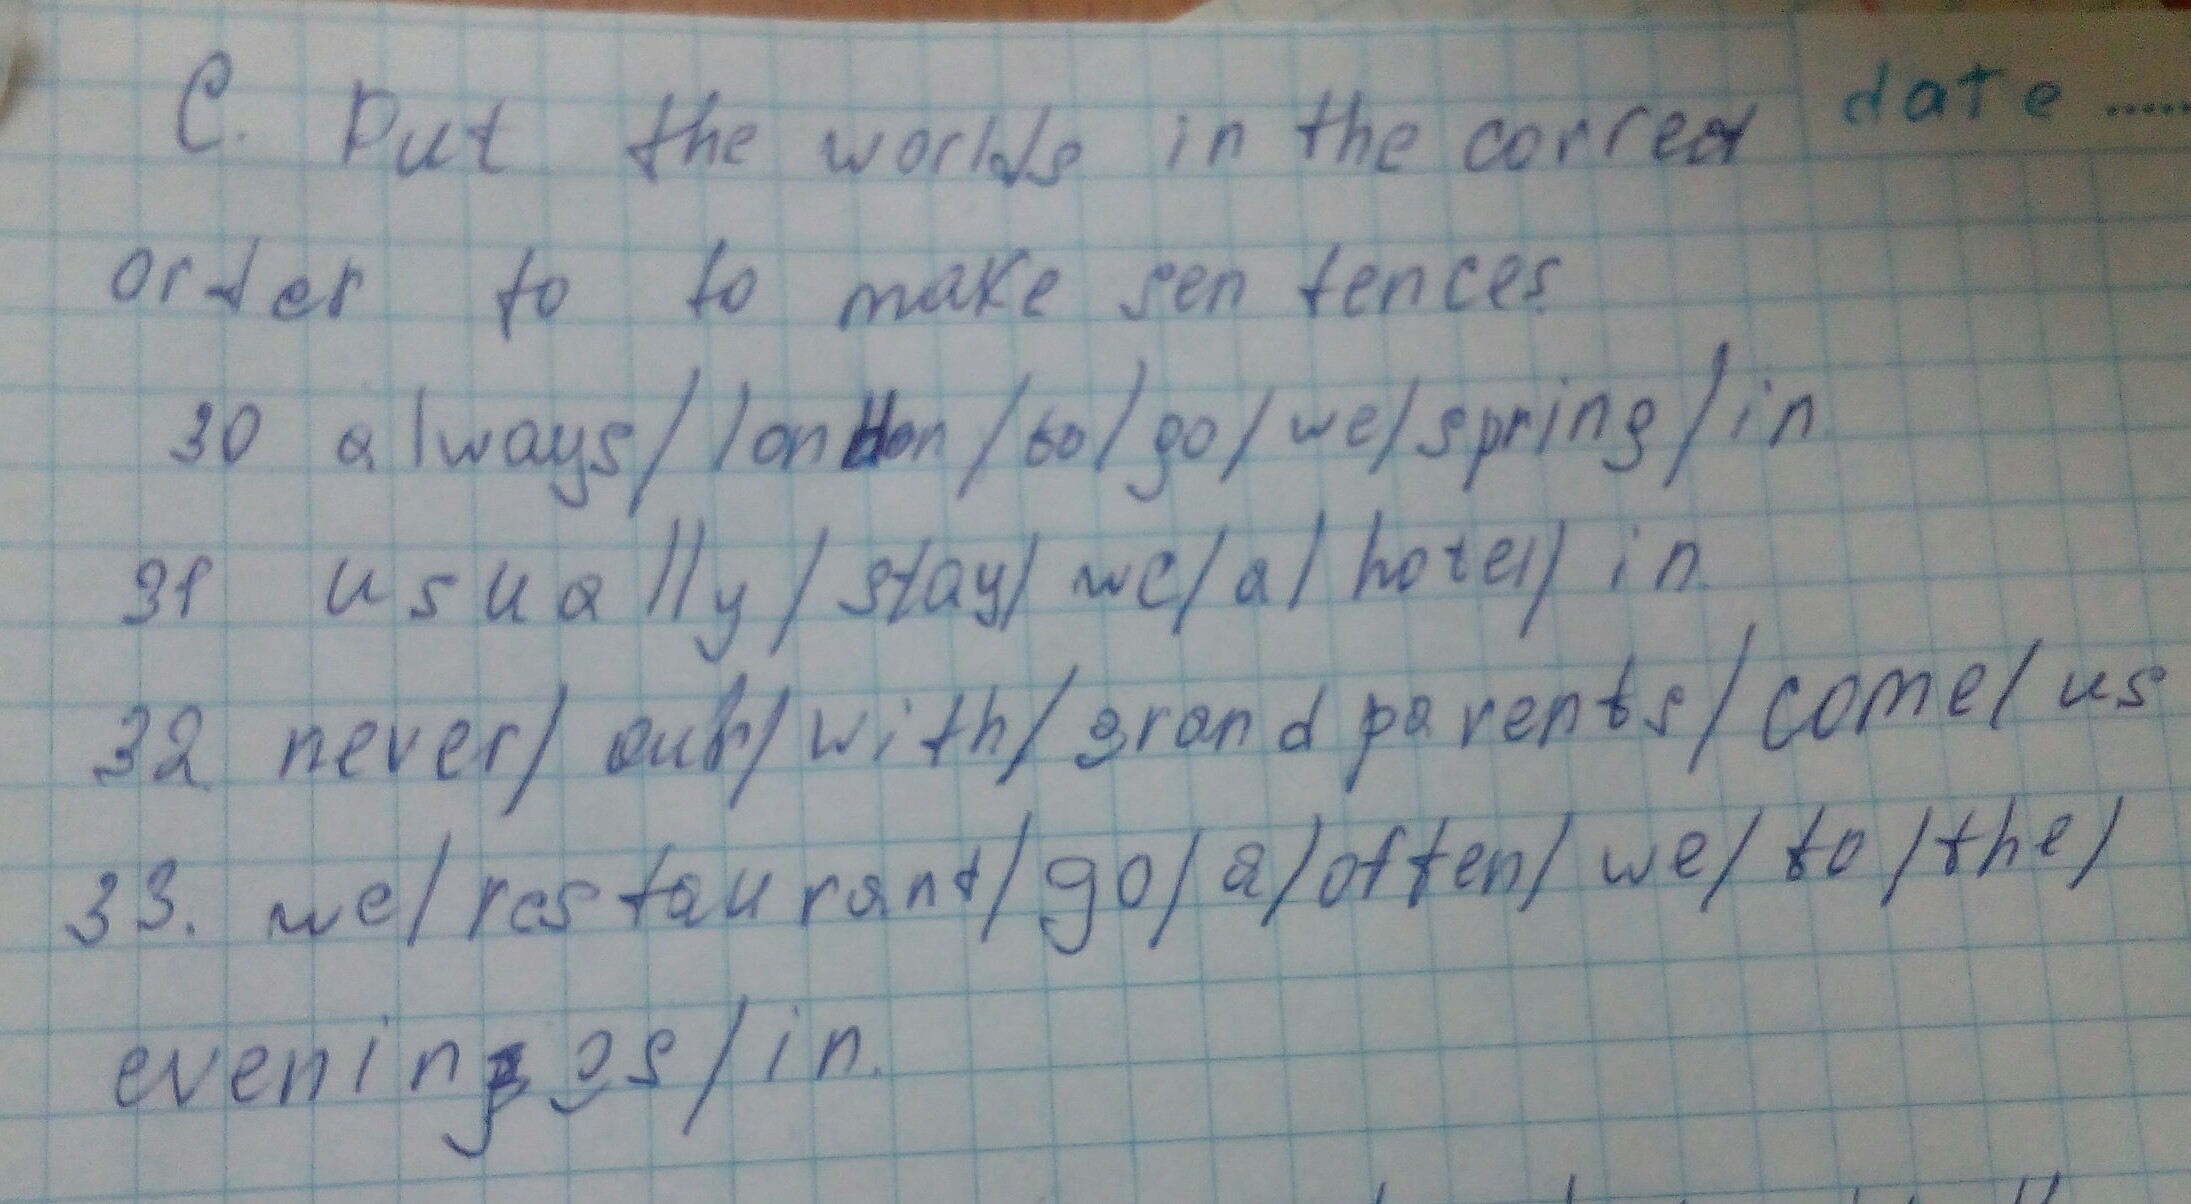 C. Put the worlds in the correct
date .....
order to to make sentences
30 always/london/to/go/we/spring/in
31 usually/stay/we/a/hotel/in
32 never/our/with/grandparents/come/us
33. we/restaurant/go/a/often/we/to/the/
evenings/in.